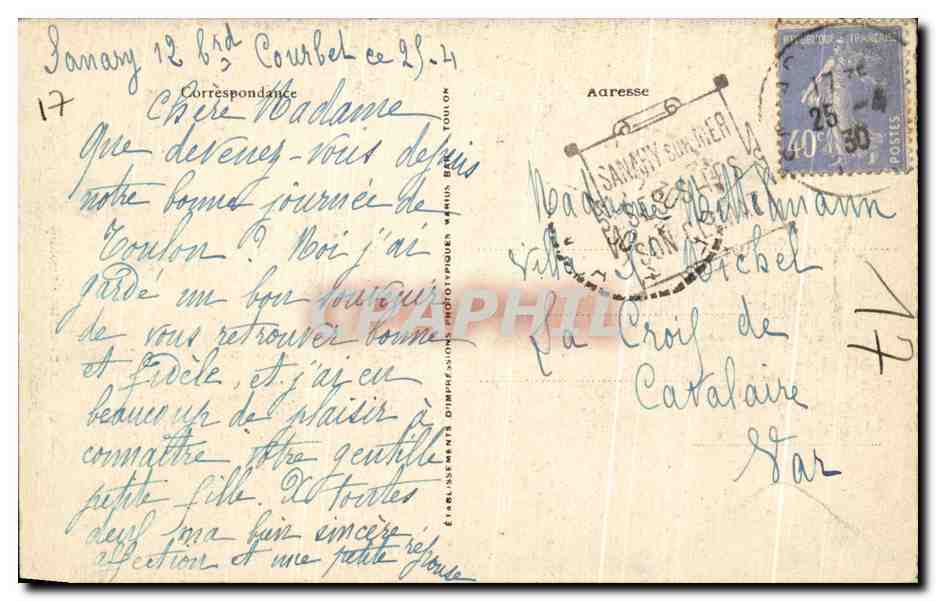 Sanary 12 brd Courbet ce 25-4
17
Correspondance
Chère Madame
Que devenez-vous depuis
notre bonne journée de
Toulon ? Moi j'ai
gardé un bon souvenir
de vous retrouver bonne
et fidèle, et j'ai eu
beaucoup de plaisir à
connaître votre gentille
petite fille. À toutes
deux ma bien sincère
affection et une petite réponse
ETABLISSEMENTS D'IMPRESSIONS PHOTOTYPIQUES MARIUS BAR, TOULON
CPAPHIL
Adresse
SANARY SUR MER
SES
SON
REPUBLIQUE FRANÇAISE
40c
POSTES
17
25 -4
30
Madame
Villa St Michel
La Croix de
Cavalaire
Var
17